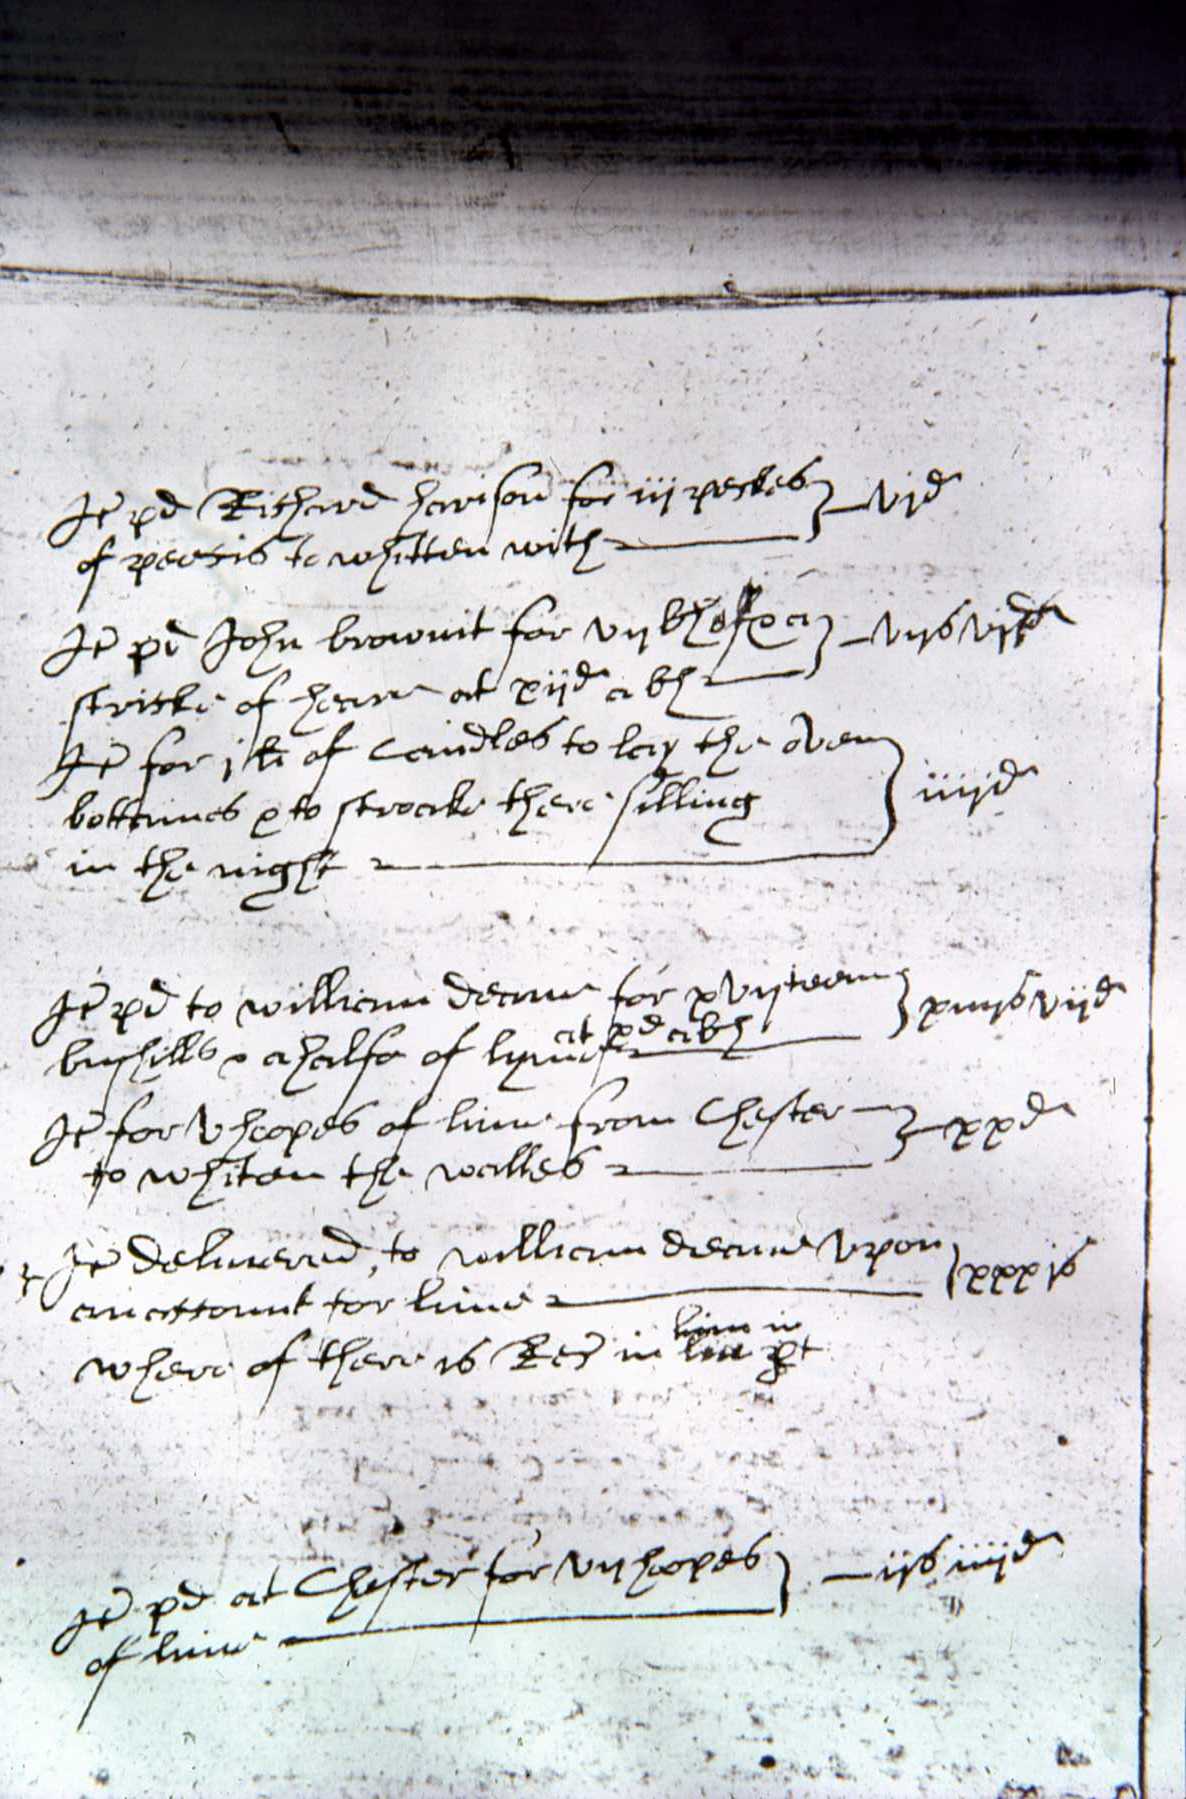 It pd Richard harison for iij peckes } vjd
of peeris to whitten with
It pd John brownit for vij bh & a } vijs vjd
stricke of heare at xijd a bh
It for j li of Candles to lay the oven
bottames & to stroake there silling } iiijd
in the night
It pd to william deane for xvijteen } xiiijs vijd
bushills & a halfe of lyme at xd a bh
It for v hoopes of lime from Chester } xxd
to whiten the walles
It delivered to william deane vpon } xxxjs
an account for lime
where of there is Rec in lime
It pd at Chester for vij hoopes } ijs iiijd
of lime